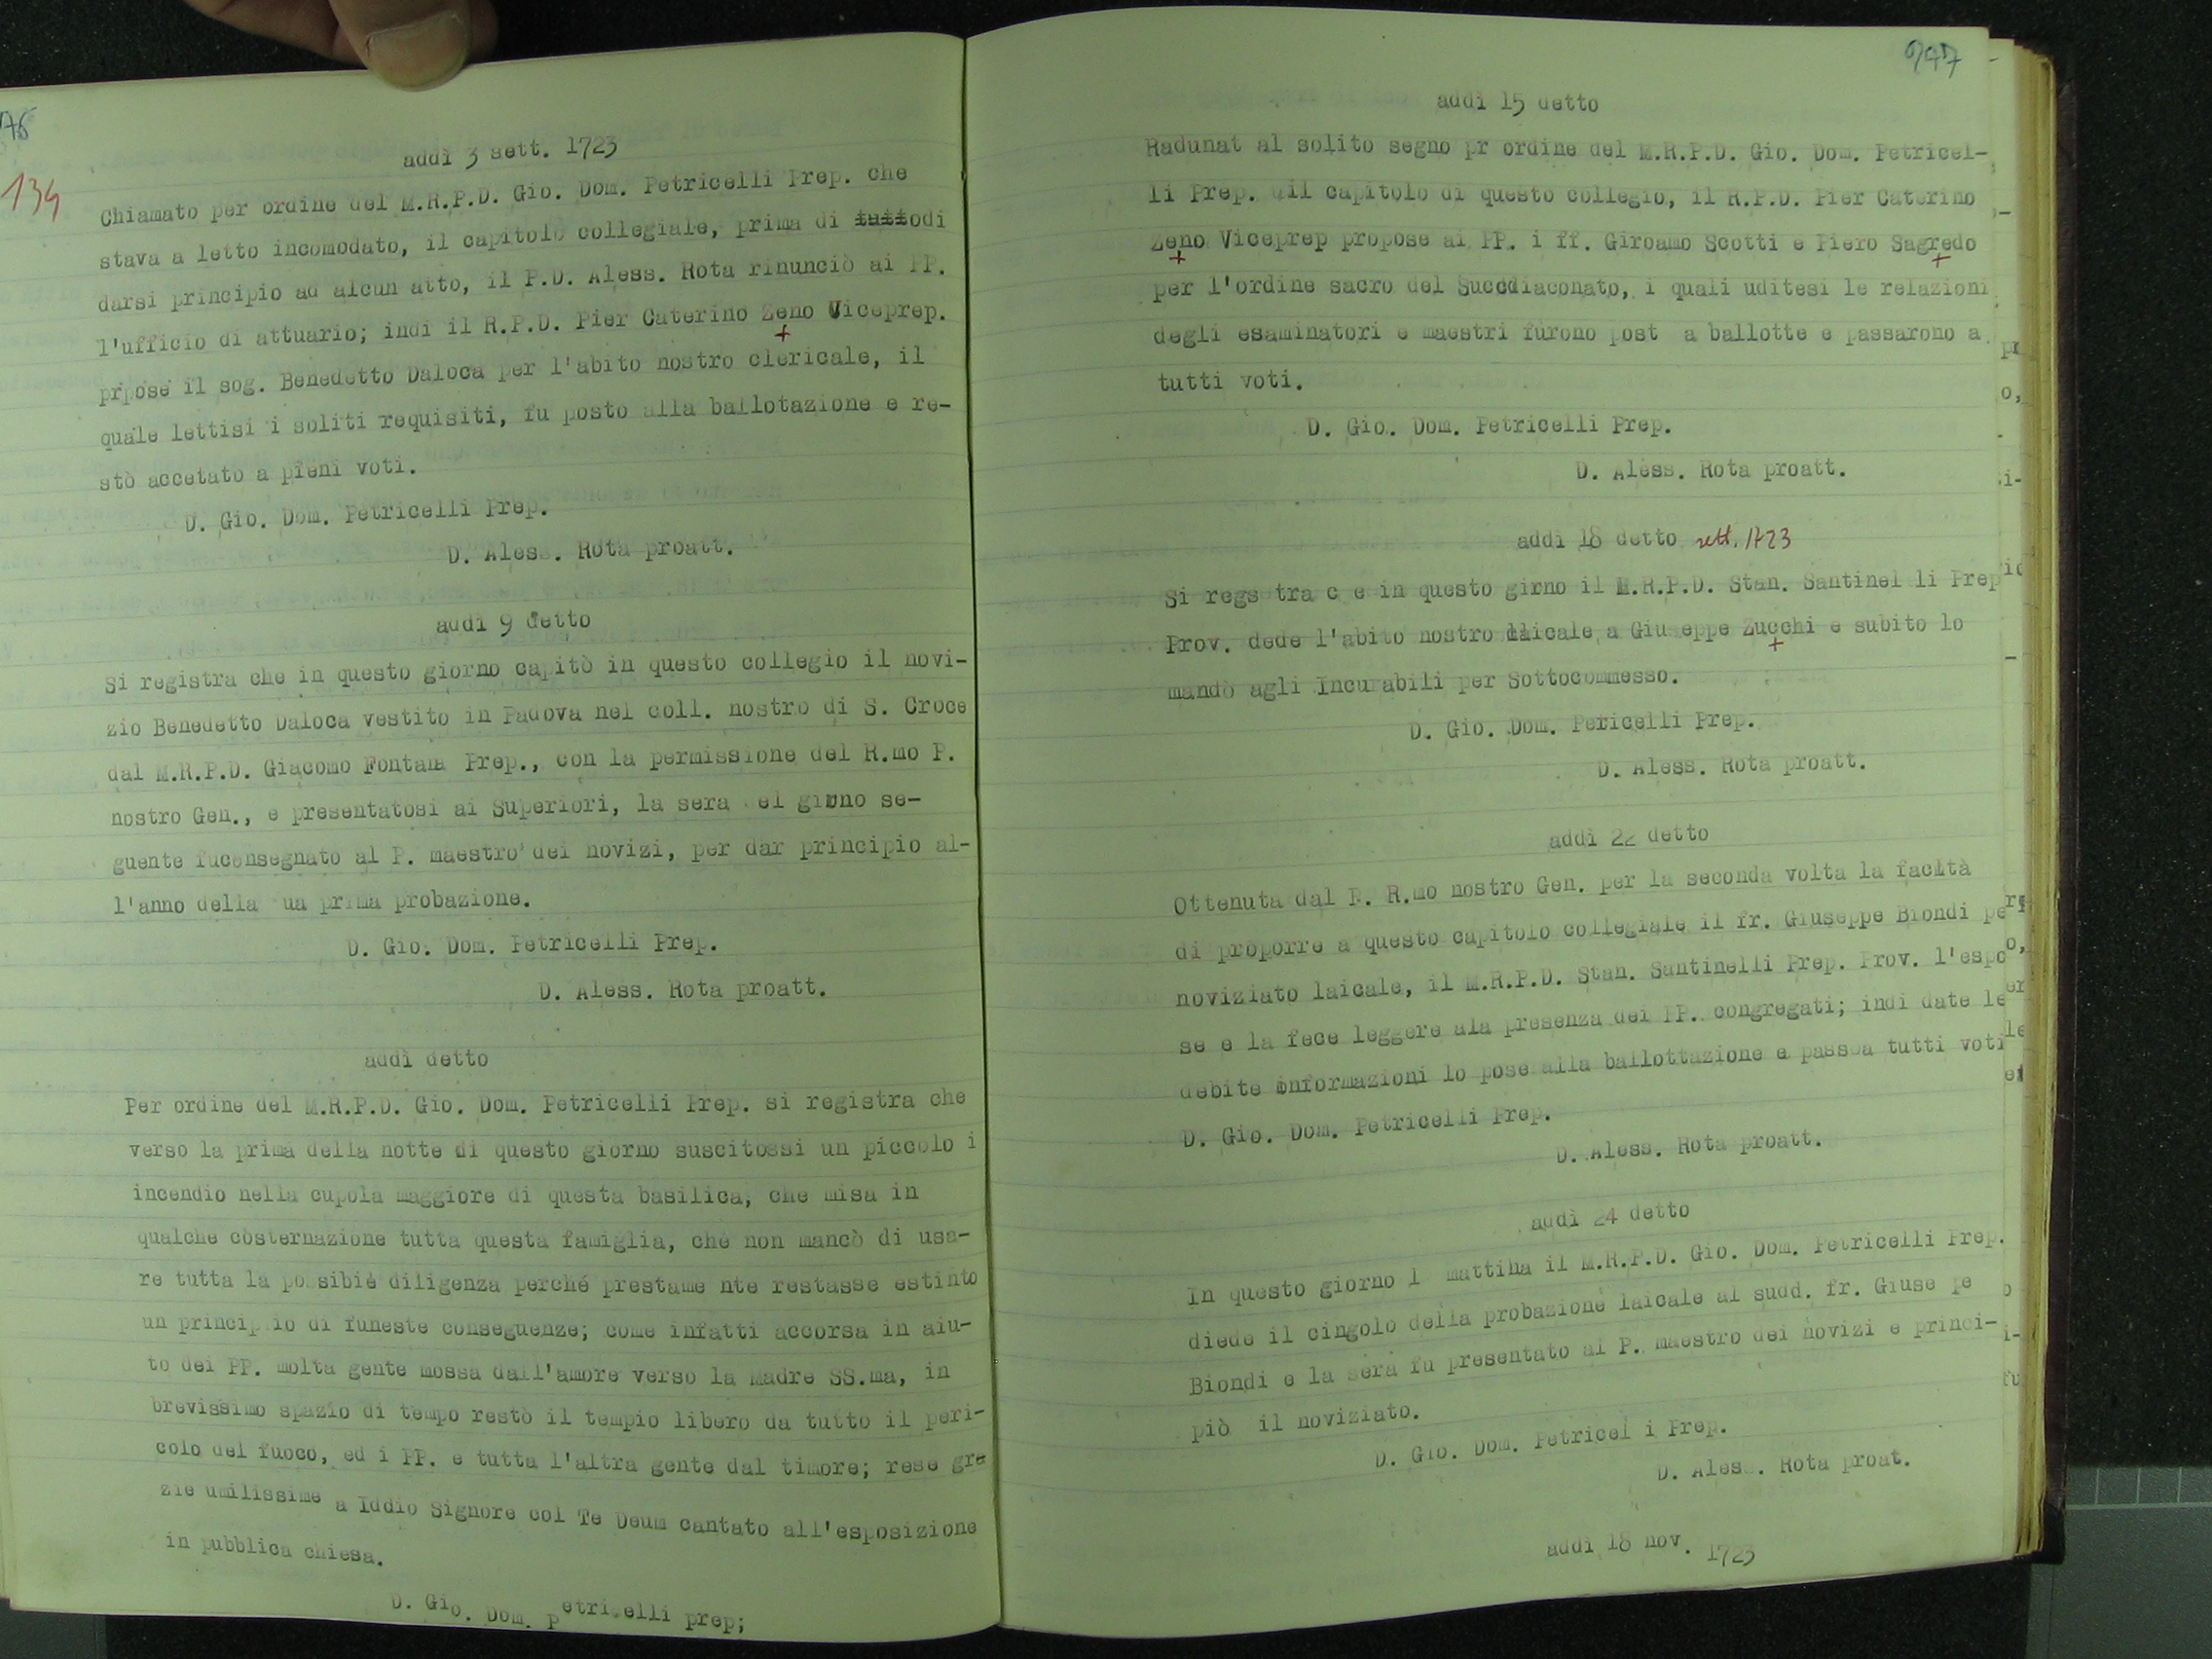 134
addì 3 sett. 1723
Chiamato per ordine del M.R.P.D. Gio. Dom. Petricelli Prep. che
stava a letto incomodato, il capitolo collegiale, prima di tuttodi
darsi principio ad alcun atto, il P.D. Aless. Rota rinunciò ai PP.
l'ufficio di attuario; indi il R.P.D. Pier Caterino Zeno Viceprep.
prpose il sog. Benedetto Daloca per l'abito nostro clericale, il
quale lettisi i soliti requisiti, fu posto alla ballotazione e re-
stò accetato a pieni voti.
D. Gio. Dom. Petricelli Prep.
D. Aless. Rota proatt.
addì 9 detto
Si registra che in questo giorno capitò in questo collegio il novi-
zio Benedetto Daloca vestito in Padova nel coll. nostro di S. Croce
dal M.R.P.D. Giacomo Fontana Prep., con la permissione del R.mo P.
nostro Gen., e presentatosi ai Superiori, la sera el girno se-
guente fuconsegnato al P. maestro dei novizi, per dar principio al-
l'anno della ua prima probazione.
D. Gio. Dom. Petricelli Prep.
D. Aless. Rota proatt.
addì detto
Per ordine del M.R.P.D. Gio. Dom. Petricelli Prep. si registra che
verso la prima della notte di questo giorno suscitossi un piccolo i
incendio nella cupola maggiore di questa basilica, che misa in
qualche costernazione tutta questa famiglia, che non mancò di usa-
re tutta la possibie diligenza perché prestame nte restasse estinto
un princip io di funeste conseguenze; come infatti accorsa in aiu-
to dei PP. molta gente mossa dall'amore verso la Madre SS.ma, in
brevissimo spazio di tempo restò il tempio libero da tutto il peri-
colo del fuoco, ed i PP. e tutta l'altra gente dal timore; rese gra
zie umilissime a Iddio Signore col Te Deum cantato all'esposizione
in pubblica chiesa.
D. Gio. Dom. Petricelli prep;
247
addì 15 detto
Radunat al solito segno pr ordine del M.R.P.D. Gio. Dom. Petricel-
li Prep. il capitolo di questo collegio, il R.P.D. Pier Caterino
Zeno Viceprep propose ai PP. i ff. Giroamo Scotti e Piero Sagredo
per l'ordine sacro del Succdiaconato, i quali uditesi le relazioni
degli esaminatori e maestri furono post a ballotte e passarono a
tutti voti.
D. Gio. Dom. Petricelli Prep.
D. Aless. Rota proatt.
addì 18 detto sett. 1723
Si regs tra c e in questo girno il M.R.P.D. Stan. Santinel li Prep
Prov. dede l'abito nostro laicale a Giu eppe Zucchi e subito lo
mandò agli Incurabili per Sottocommesso.
D. Gio. Dom. Pericelli Prep.
D. Aless. Rota proatt.
addì 22 detto
Ottenuta dal P. R.mo nostro Gen. per la seconda volta la facltà
di proporre a questo capitolo collegiale il fr. Giuseppe Biondi pe
noviziato laicale, il M.R.P.D. Stan. Santinelli Prep. Prov. l'espo
se e la fece leggere ala presenza dei PP. congregati; indi date le
debite informazioni lo pose alla ballottazione e passòa tutti voti
D. Gio. Dom. Petricelli Prep.
D. Aless. Rota proatt.
addì 24 detto
In questo giorno l mattina il M.R.P.D. Gio. Dom. Petricelli Prep.
diede il cingolo della probazione laicale al sudd. fr. Giuse pe
Biondi e la sera fu presentato al P. maestro dei novizi e princi-
piò il noviziato.
D. Gio. Dom. Petricel i Prep.
D. Aless. Rota proat.
addì 18 nov. 1723